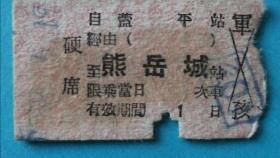 自蓋平站
經由( )
至熊岳城站
限乘當日 次車
有效期間1日
硬席
軍
孩